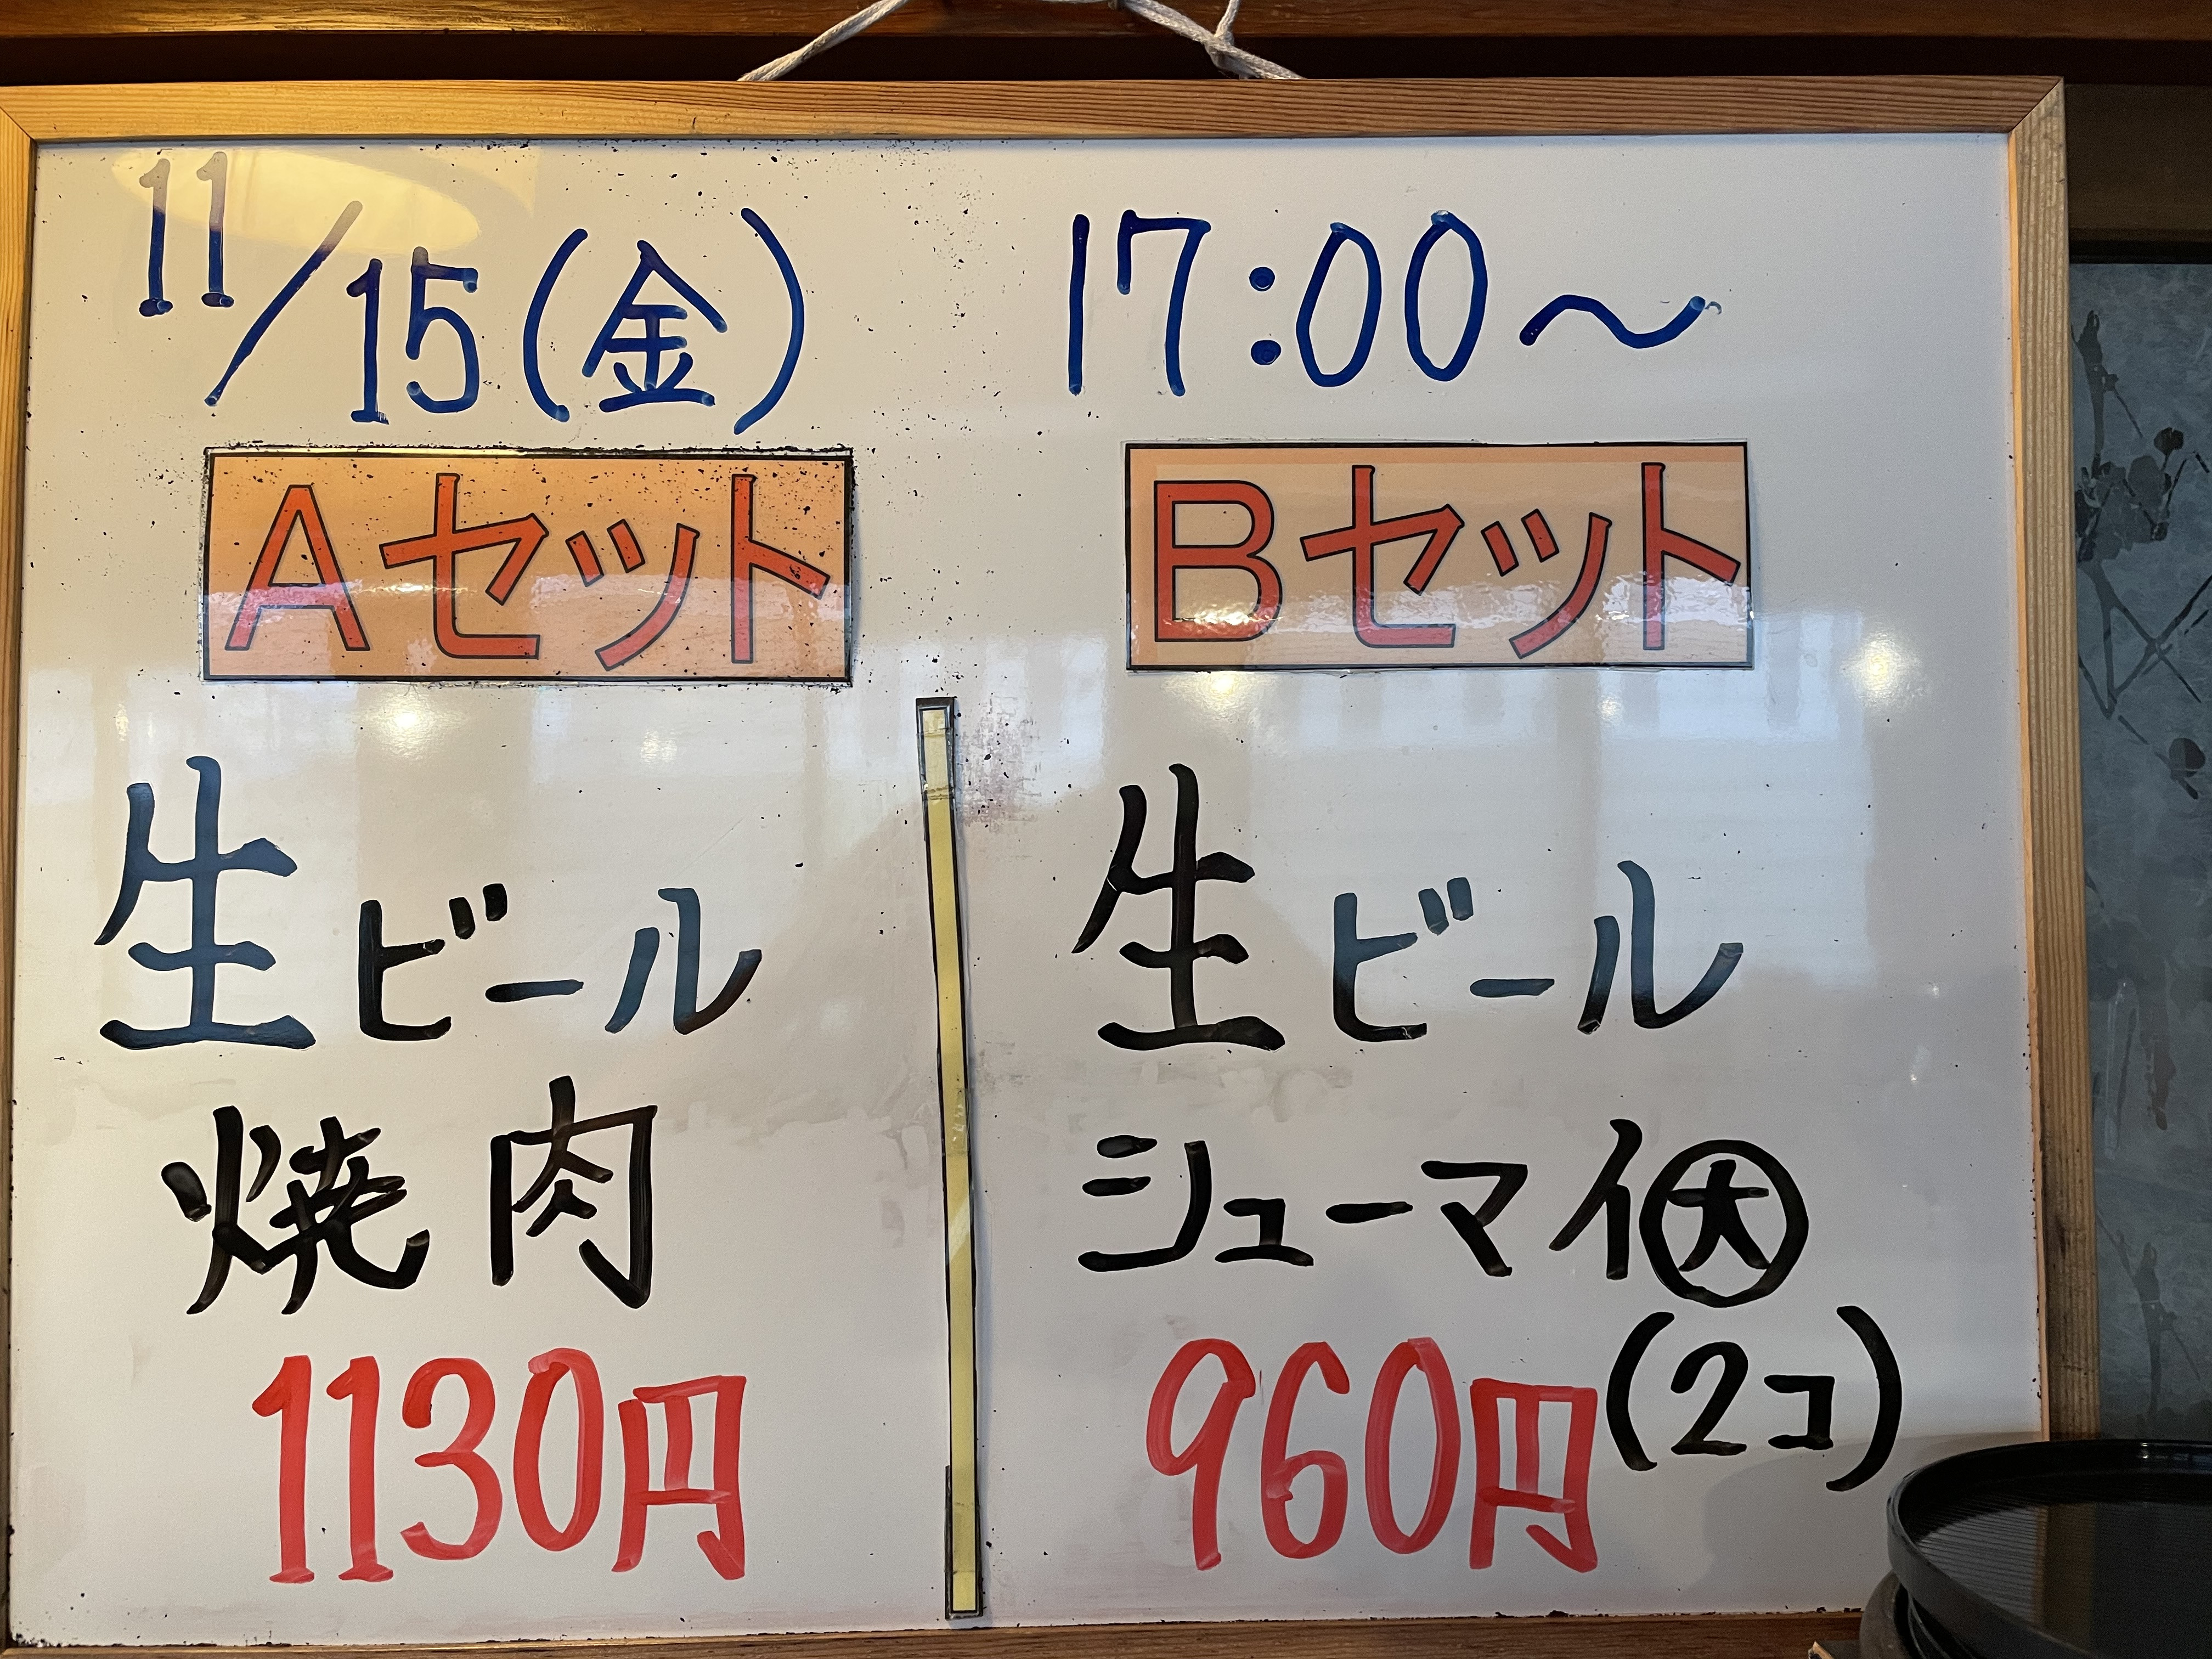 11/15(金) 17:00～
Aセット
生ビール
焼肉
1130円
Bセット
生ビール
シューマイ㊛